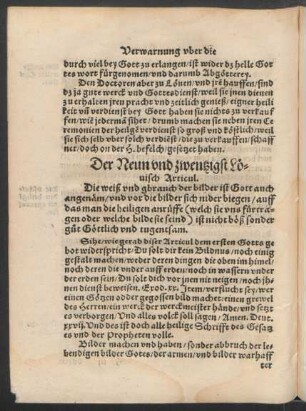 Verwarnung vber die
durch viel bey Gott zu erlangen/ist wider dz helle Got
tes wort fürgenomen/vnd darumb Abgötterey.
Den Doctoren aber zu Lönen/vnd jrē hauffen/sind
dz ja gute werck vnd Gottesdienst/weil sie jnen dienen
zu erhalten jren pracht vnd zeitlich genieß/eigner heili
keit vn̄ verdienst bey Gott haben sie nichts zu verkauf
fen/wie jederman sihet/drumb machen sie neben jren Ce
remonien der heilgē verdienst so groß vnd köstlich/weil
sie sich selb vber solch verdiēst/die zu verkauffen/schaff
ner/doch on der H. befelch/gesetzet haben.
Der Neun vnd zwentzigst Lö-
uisch Articul.
Die weiß vnd gbrauch der bilder ist Gott auch
angenäm/vnd vor die bilder sich nider biegen/auff
das man die heiligen anrüffe (welch sie vns fürtra-
gen oder welchs bilde sie seind) ist nicht böß sonder
gůt Göttlich vnd tugentsam.
Sihe/wiegerad diser Articul dem ersten Gotts ge
bot widerspricht: Du solt dir kein Bildnus/noch einig
gestalt machen/weder deren dingen die oben im himel
noch deren die vnder auff erden/noch in wassern vnder
der erden sein/Du solt dich vor jnen nit neigen/noch jh-
nen dienst beweisen. Exod. xx. Item/verflucht sey/wer
einen Götzen odder gegossen bild machet/einen grewel
des Herren/ein werck der werckmeister hände/vnd setzet
es verborgen. Vnd alles volck soll sagen/Amen. Deut.
xxvij. Vnd das ist doch alle heilige Schrifft des Gesatz
es vnd der Propheten volle.
Bilder machen vnd haben/sonder abbruch der le-
bendigen bilder Gottes/der armen/vnd bilder warhaff
ter